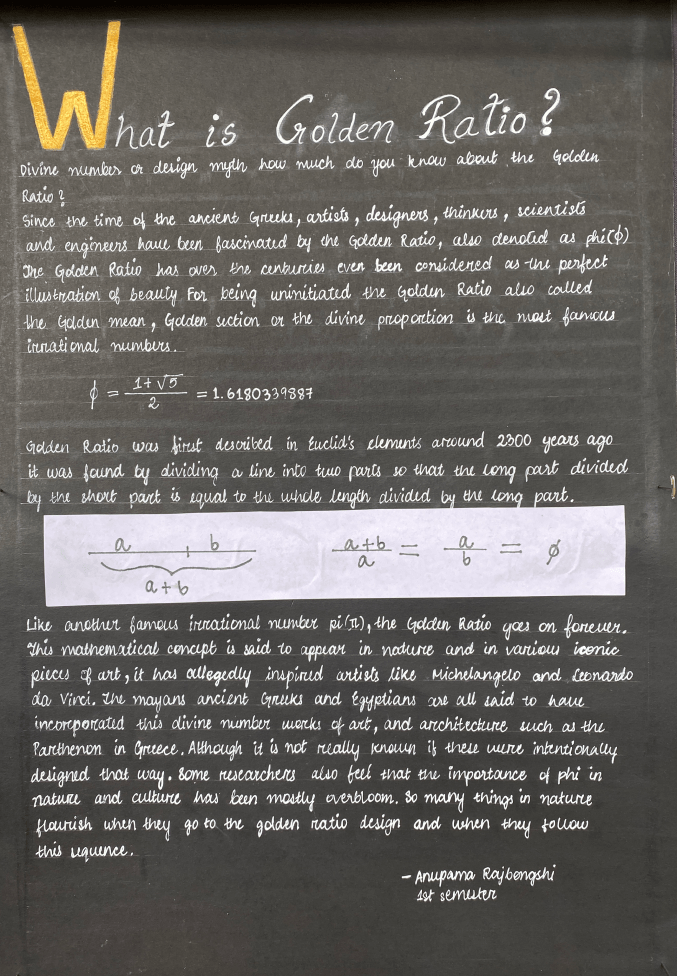 What is Golden Ratio?
Divine number or design myth how much do you know about the Golden
Ratio?
Since the time of the ancient Greeks, artists, designers, thinkers, scientists
and engineers have been fascinated by the Golden Ratio, also denoted as phi(ϕ)
The Golden Ratio has over the centuries even been considered as the perfect
illustration of beauty For being uninitiated the Golden Ratio also called
the Golden mean, Golden section or the divine proportion is the most famous
irrational numbers.
ϕ = (1+√5)/2 = 1.6180339887
Golden Ratio was first described in Euclid's elements around 2300 years ago
it was found by dividing a line into two parts so that the long part divided
by the short part is equal to the whole length divided by the long part.
a b
a+b
(a+b)/a = a/b = ϕ
Like another famous irrational number pi(π), the Golden Ratio goes on forever.
This mathematical concept is said to appear in nature and in various iconic
pieces of art, it has allegedly inspired artists like Michelangelo and Leonardo
da Vinci. The mayans ancient Greeks and Egyptians are all said to have
incorporated this divine number works of art, and architecture such as the
Parthenon in Greece. Although it is not really known if these were intentionally
designed that way. Some researchers also feel that the importance of phi in
nature and culture has been mostly overbloom. So many things in nature
flourish when they go to the golden ratio design and when they follow
this sequence.
- Anupama Rajbongshi
1st semester